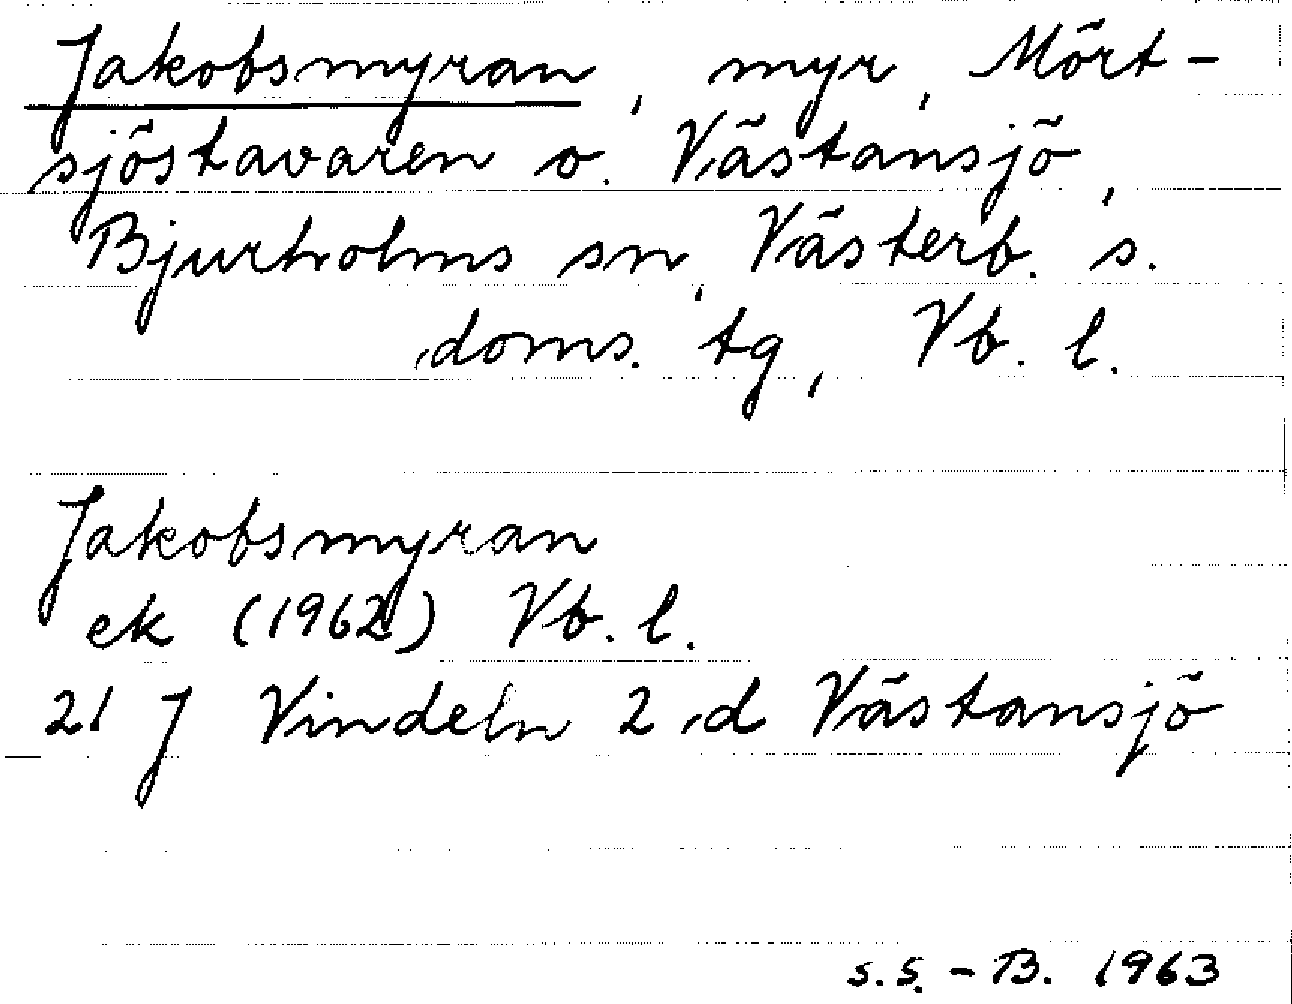 Jakobsmyran, myr, Mört-
sjöstavaren o. Västansjö,
Bjurholms sn, Västerb. s.
doms. tg, Vb. l.
Jakobsmyran
ek (1962) Vb. l.
21 J Vindeln 2 d Västansjö
S.S. - B. 1963